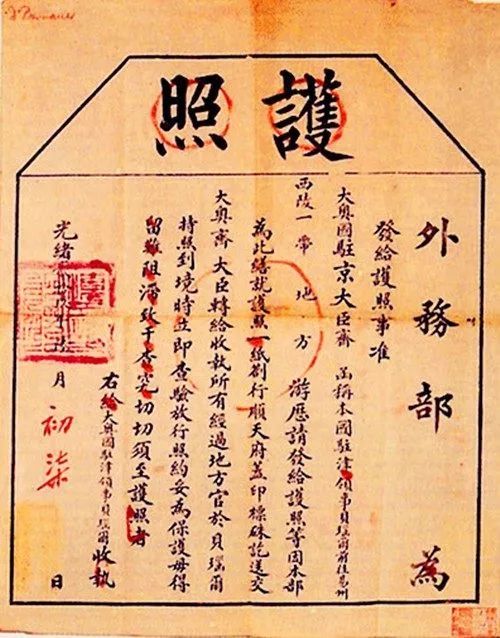 護照
外務部 為
發給護照事准
大奧國駐京大臣齊 函稱本國駐津領事貝瑙爾前往易州
西陵一帶地方 游歷請發給護照等因本部
為此繕就護照一紙劄行順天府蓋印標硃訖送交
大奧齊大臣轉給收執所有經過地方官於貝瑙爾
持照到境時立即查驗放行照約妥為保護毋得
留難阻滯致干查究切切須至護照者
右給大奧國駐津領事貝瑙爾收執
光緒 月初柒日